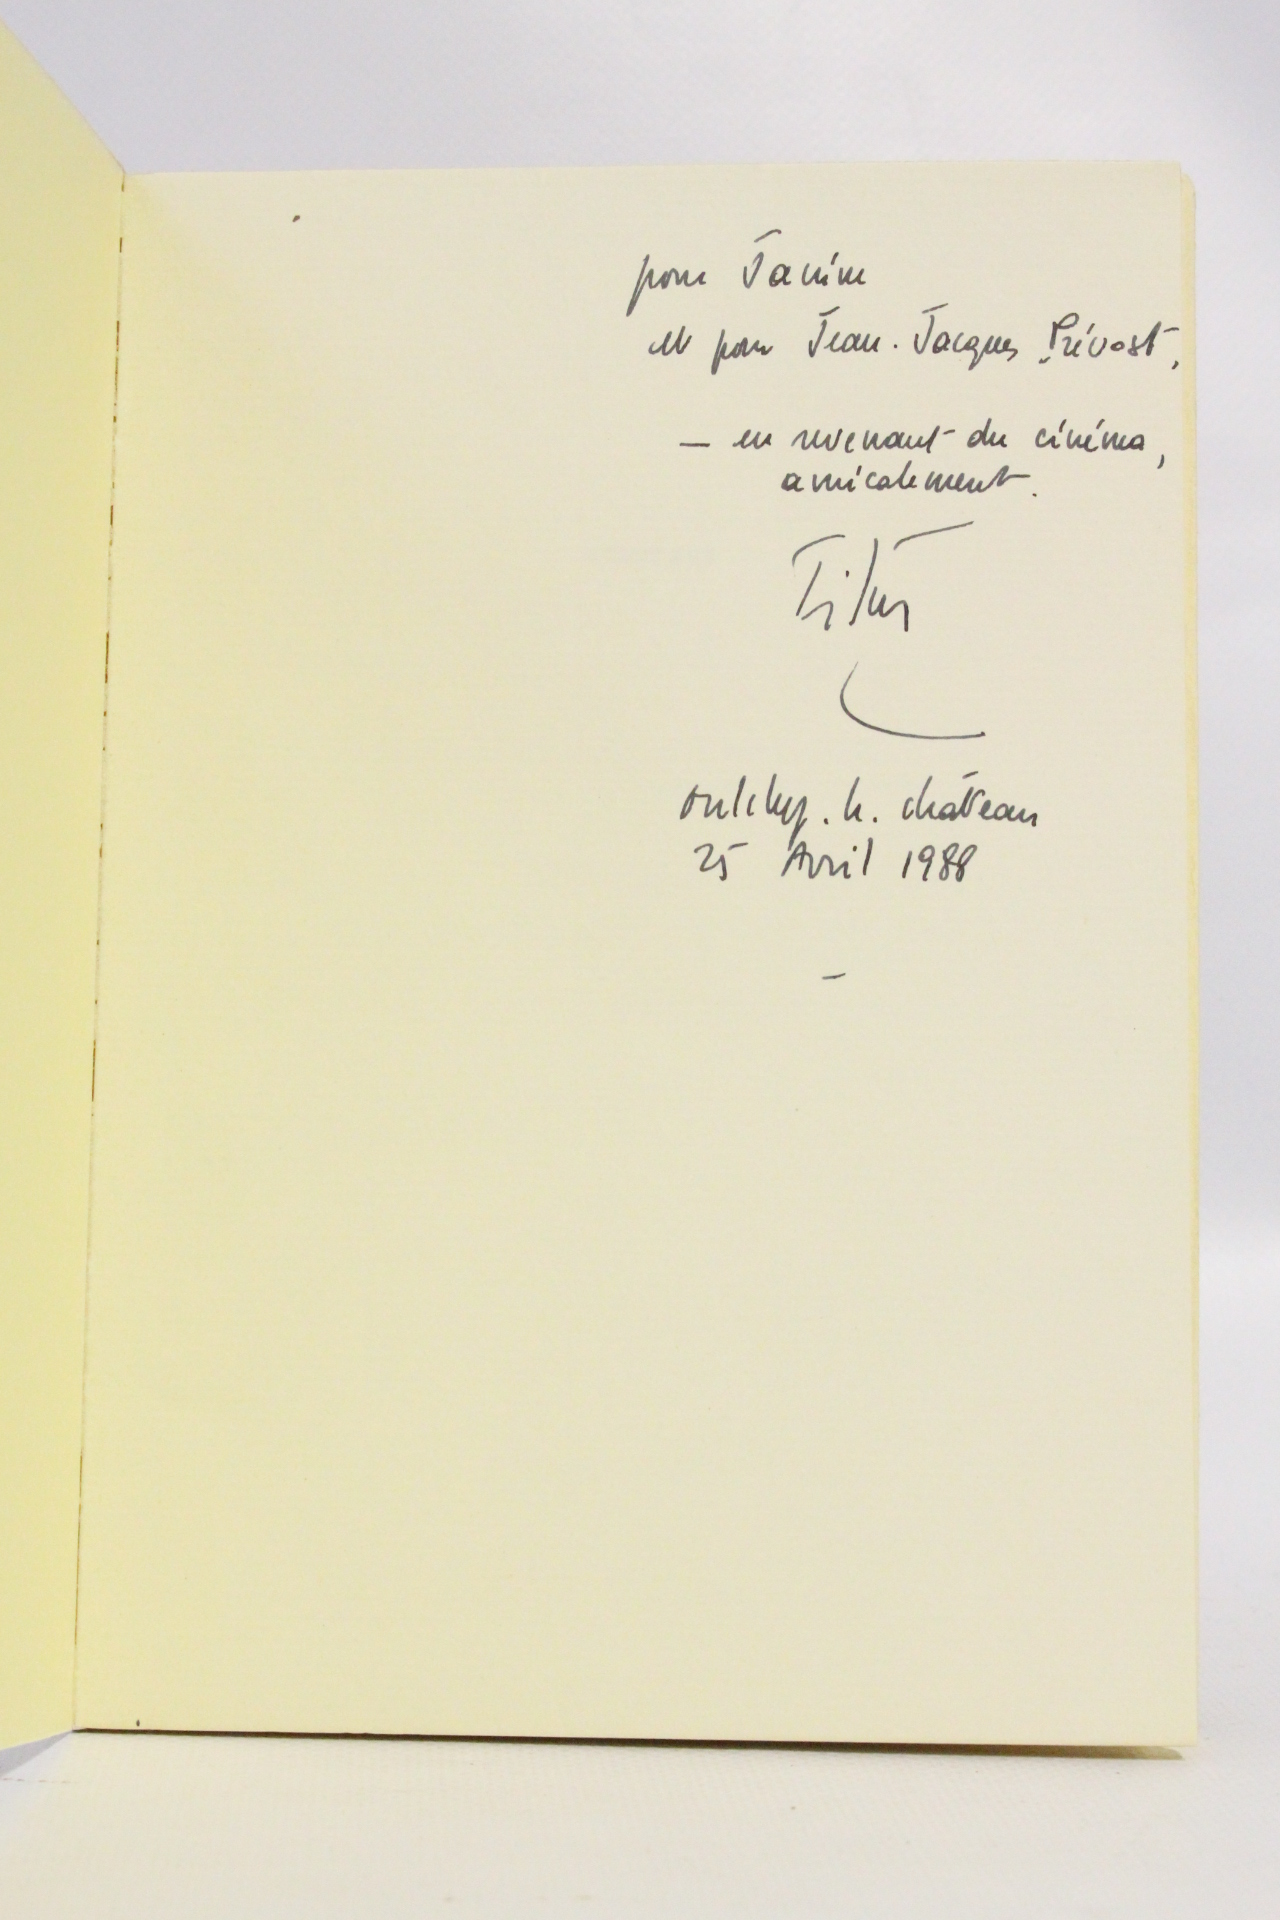 pour Janine
et pour Jean-Jacques Prévost,
— en revenant du cinéma,
amicalement.
Oulchy. le. château
25 Avril 1988
—